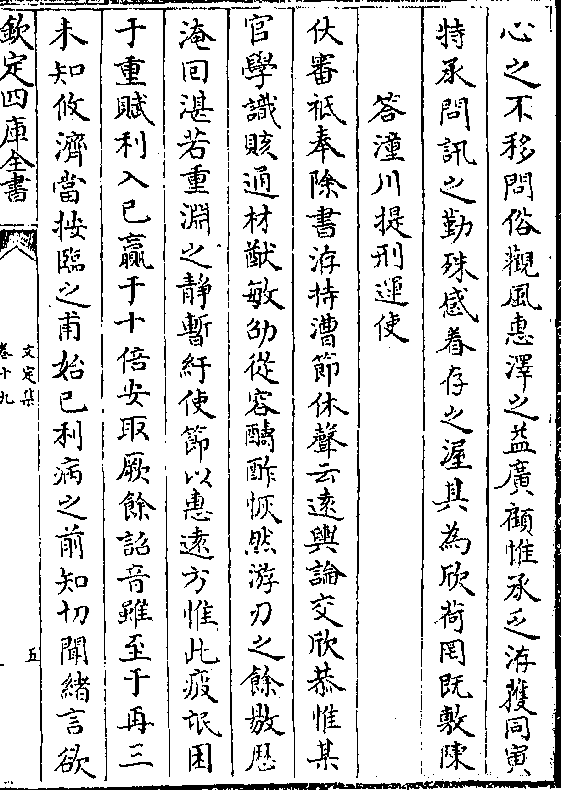 心之不移問俗觀風惠澤之益廣顧惟承乏洊獲同寅
特承問訊之勤殊感着存之渥其為欣荷罔既敷陳
答潼川提刑運使
伏審祗奉除書洊持漕節休聲云遠輿論交欣恭惟某
官學識賅通材猷敏劭從容酬酢恢然游刃之餘敭歴
淹回湛若重淵之静暫紆使節以惠遠方惟此疲氓困
于重賦利入已贏于十倍安取厥餘詔音雖至于再三
未知攸濟當按臨之甫始已利病之前知切聞緒言欲
欽定四庫全書
文定集
卷十九
五